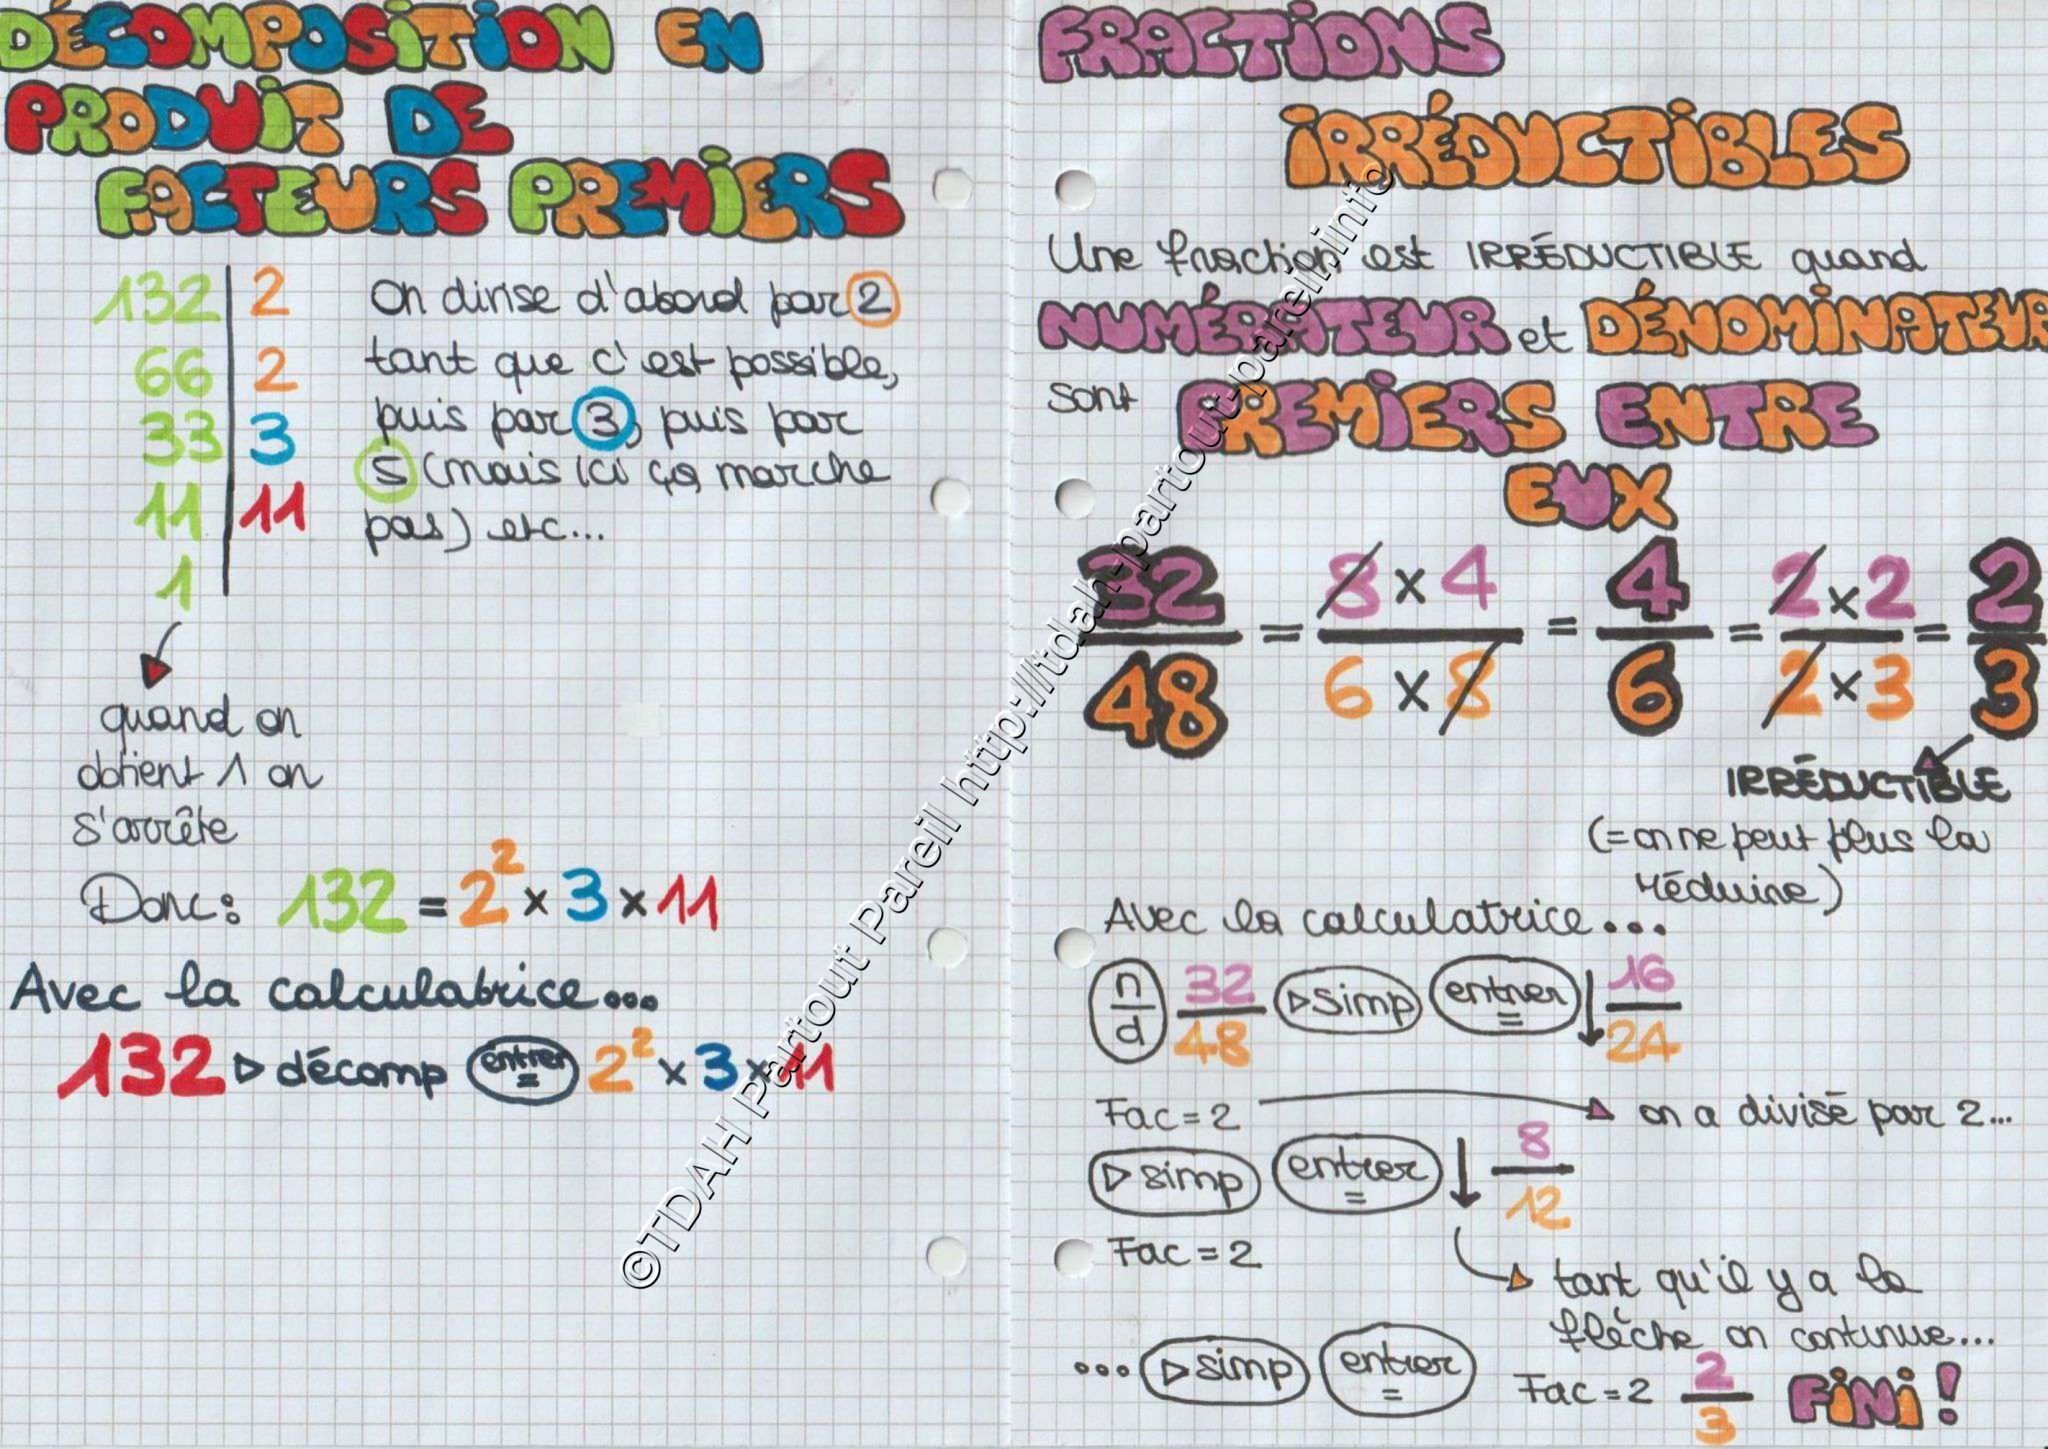 DÉCOMPOSITION EN
PRODUIT DE
FACTEURS PREMIERS
132 | 2
66 | 2
33 | 3
11 | 11
1
On divise d'abord par 2
tant que c'est possible,
puis par 3, puis par
5 (mais ici ça marche
pas) etc...
quand on
obtient 1 on
s'arrête
Donc: 132 = 2² × 3 × 11
Avec la calculatrice...
132 ▷ décomp entrer = 2² × 3 × 11
FRACTIONS
IRRÉDUCTIBLES
Une fraction est IRRÉDUCTIBLE quand
NUMÉRATEUR et DÉNOMINATEUR
sont PREMIERS ENTRE
EUX
32/48 = 8 × 4/6 × 8 = 4/6 = 2 × 2/2 × 3 = 2/3
IRRÉDUCTIBLE
(= on ne peut plus la
réduire)
Avec la calculatrice...
n/d 32/48 ▷simp entrer = ↓ 16/24
Fac = 2 on a divisé par 2...
▷simp entrer = ↓ 8/12
Fac = 2
tant qu'il y a la
flèche on continue...
... ▷simp entrer = Fac = 2 2/3 FINI!
©TDAH Partout Pareil http://tdah-partout-pareil.info